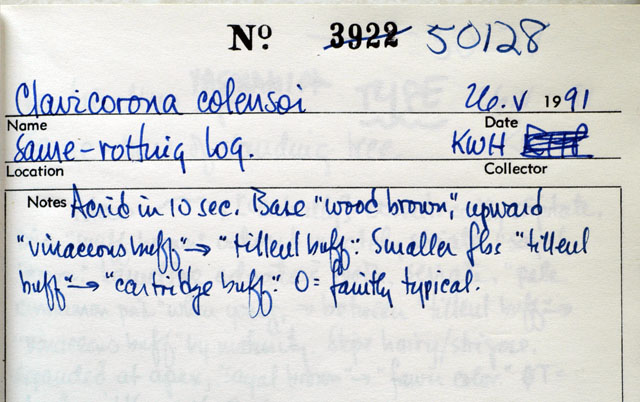 Nº 3922 50128
Clavicorona colensoi 26.V 1991
Name Date
Same-rotting log. KWH
Location Collector
Notes Acrid in 10 sec. Base "wood brown", upward
"vinaceous buff" → "tilleul buff". Smaller fbs "tilleul
buff" → "cartridge buff". O = faintly typical.